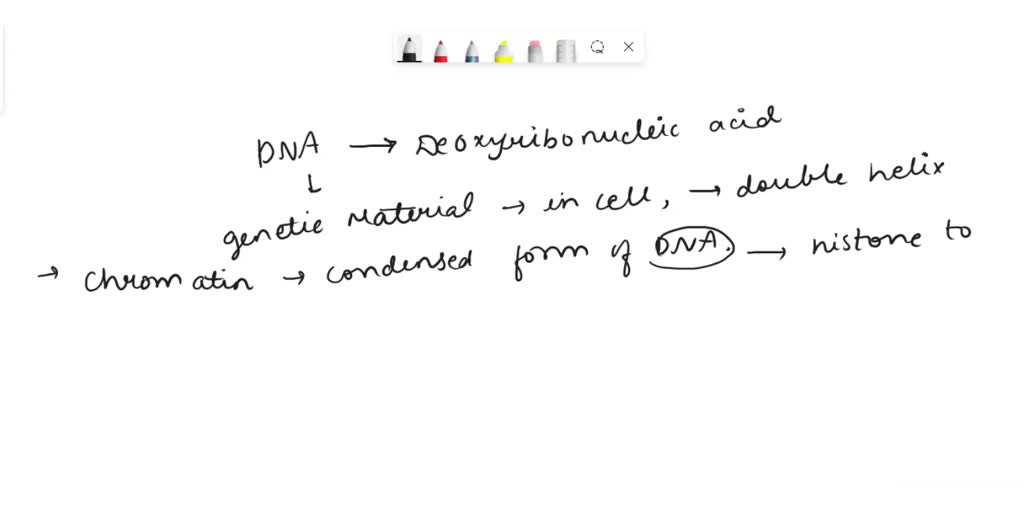 DNA → Deoxyribonucleic acid
↓
genetic material → in cell, → double helix
→ chromatin → condensed form of DNA. → histone to